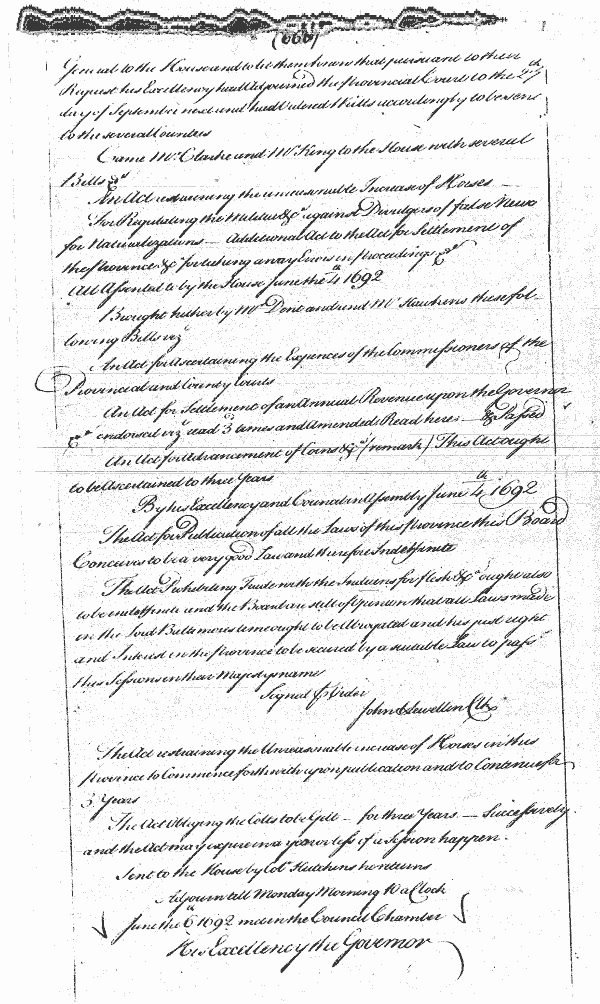 (666)
General to the House and to let them know that pursuant to their
Request his Excellency hath Adjourned the Provincial Court to the 27th
day of September next and hath Ordered Writts accordingly to be sent
to the several Counties
Came Mr. Clarke and Mr. King to the House with several
Bills &ca
An Act restraining the unreasonable Increase of Horses —
For Regulating the Militia &ca against Divulgers of false News
for Naturalizations — Additional Act to the Act for Settlement of
the Province &ca for taking away Errors in proceedings &ca
All Assented to by the House June the 4th 1692
Brought hither by Mr. Dent and Mr. Hawkins these fol-
lowing Bills vizt
An Act for Ascertaining the Expences of the Commissioners of the
Provincial and County Courts
An Act for Settlement of an Annual Revenue upon the Governor
&ca endorsed vizt read 3 times and Amended Read here — & Passed
An Act for Advancement of Coins &ca (remark) This Act ought
to be Ascertained to three Years
By his Excellency and Council in Assembly June 4th 1692
The Act for Publication of all the Laws of this Province this Board
Conceives to be a very good Law and therefore Indefinite
The Act Prohibiting Trade with the Indians for flesh &ca ought also
to be indefinite and the Board are still of Opinion that all Laws made
in the Lord Baltimores time ought to be Abrogated and his just right
and Interest in the Province to be secured by a suitable Law to pass
this Sessions in their Majestys name
Signed P Order
John Llewellin Clk
The Act restraining the Unreasonable increase of Horses in this
Province to Commence forthwith upon publication and to Continue for
3 Years
The Act Obliging the Colts to be Gelt — for three Years — Successively
and the Act may expire in a year or less if a Session happen.
Sent to the House by Colo Hutchins he returns
Adjourn till Monday Morning 10 a Clock
June the 6th 1692 met in the Council Chamber
His Excellency the Governor